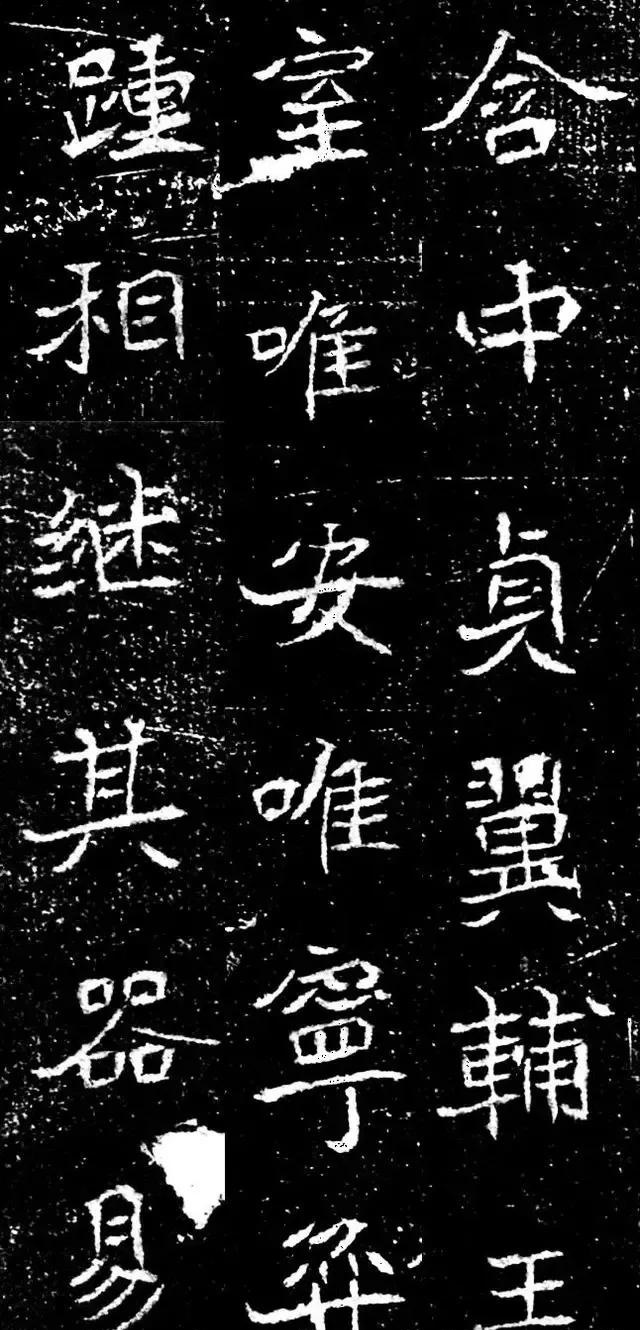 含中貞翼輔王
室唯安唯寧弈
踵相继其器易